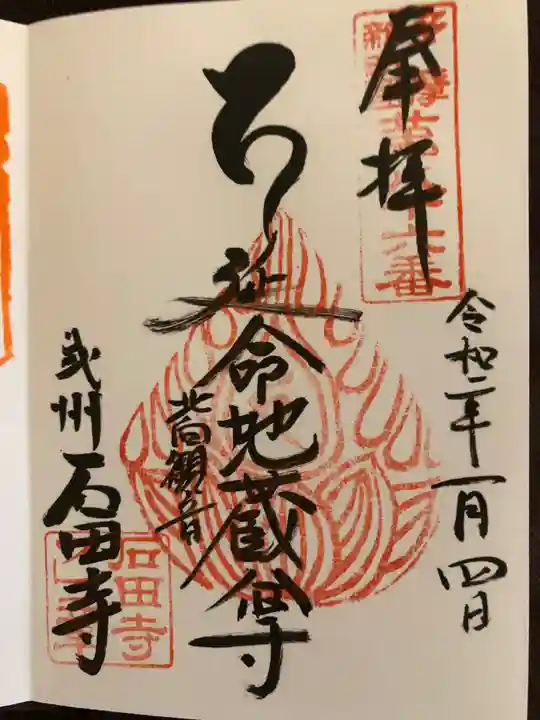 奉拝
令和二年一月四日
延命地蔵尊
北向観音
武州
石田寺
石田寺